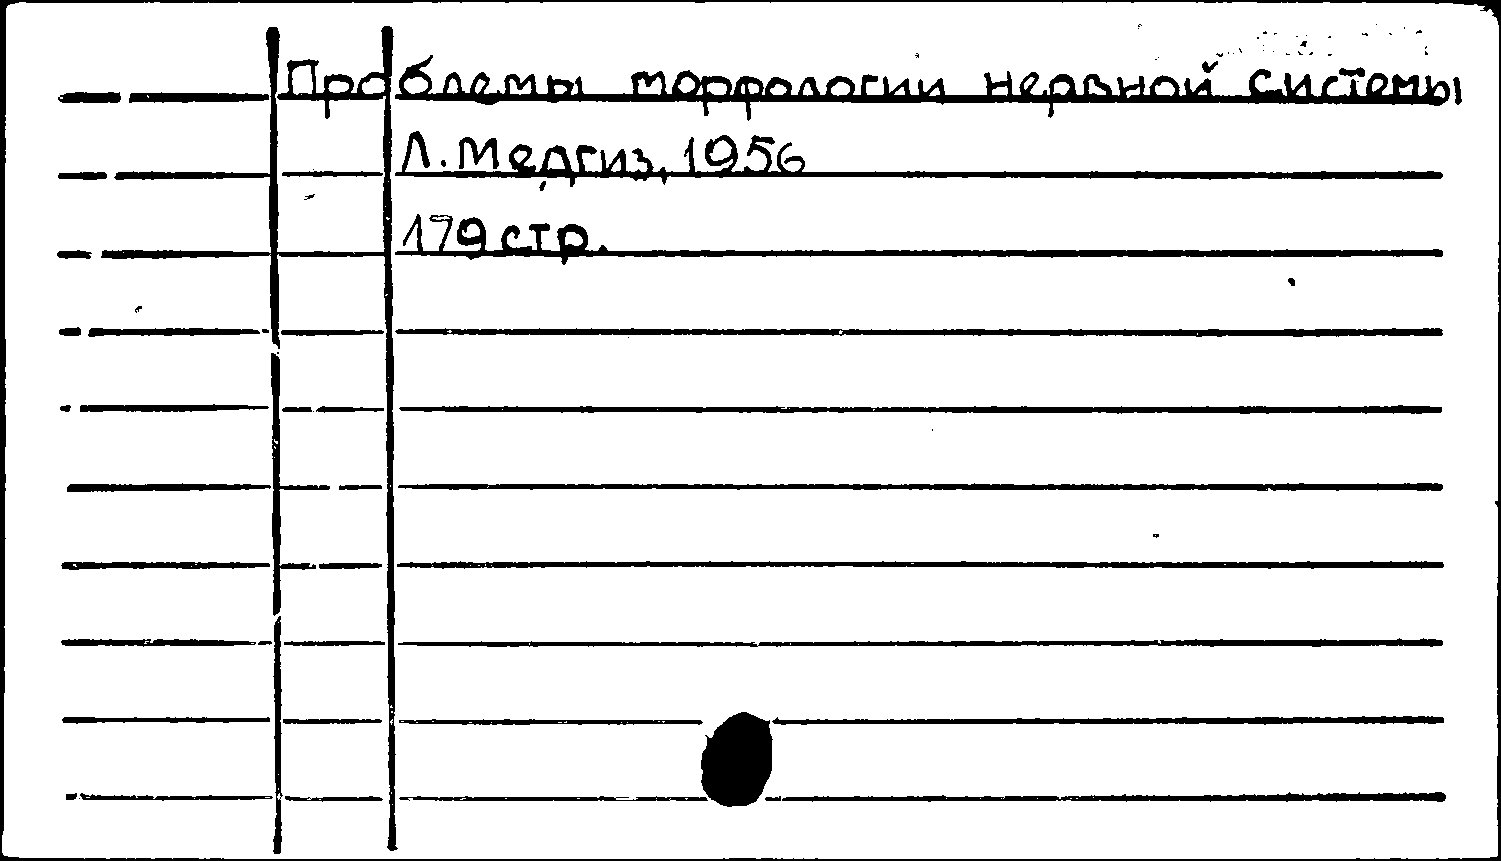 Проблемы морфологии нервной системы
Л. Медгиз, 1956
179 стр.